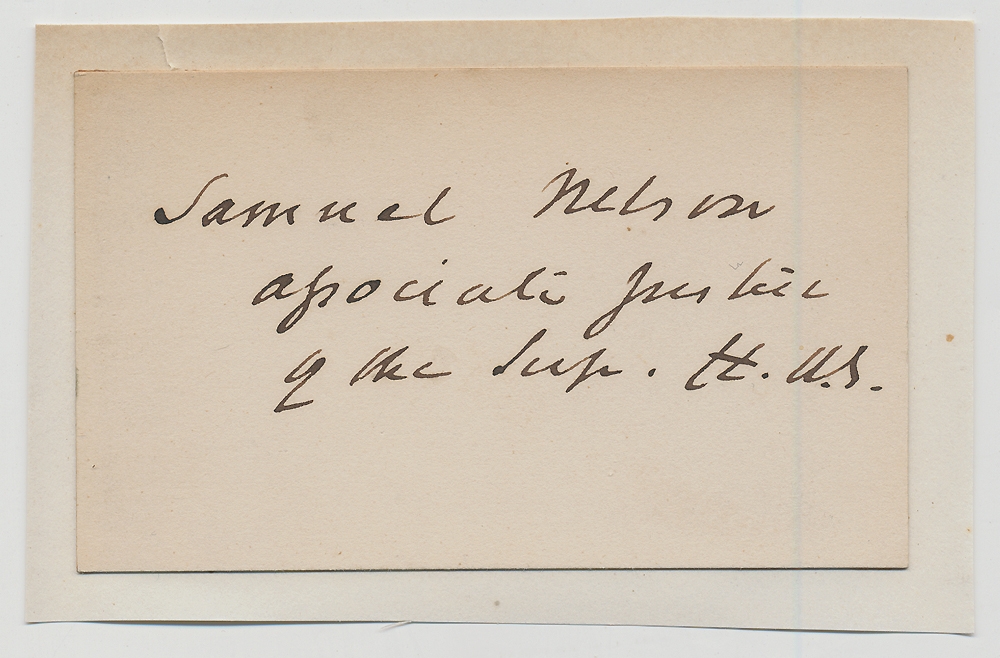 Samuel Nelson
associate Justice
of the Sup. Ct. U.S.